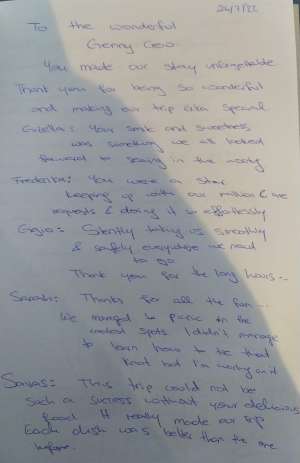 24/7/22
To the wonderful
Genny Crew.
You made our stay unforgettable
Thank you for being so wonderful
and making our trip extra special
Griella: Your smile and sweetness
was something we all looked
forward to seeing in the morning
Frederike: You were a star
keeping up with our million & one
requests & doing it so effortlessly
Gigio: Silently taking us smoothly
& safely everywhere we need
to go
Thank you for the long hours...
Sarah: Thanks for all the fun...
We managed to picnic in the
coolest spots. I didn't manage
to learn how to tie that
knot but I'm working on it
Savvas: This trip could not be
such a success without your delicious
food. It really made our trip
Each dish was better than the one
before.